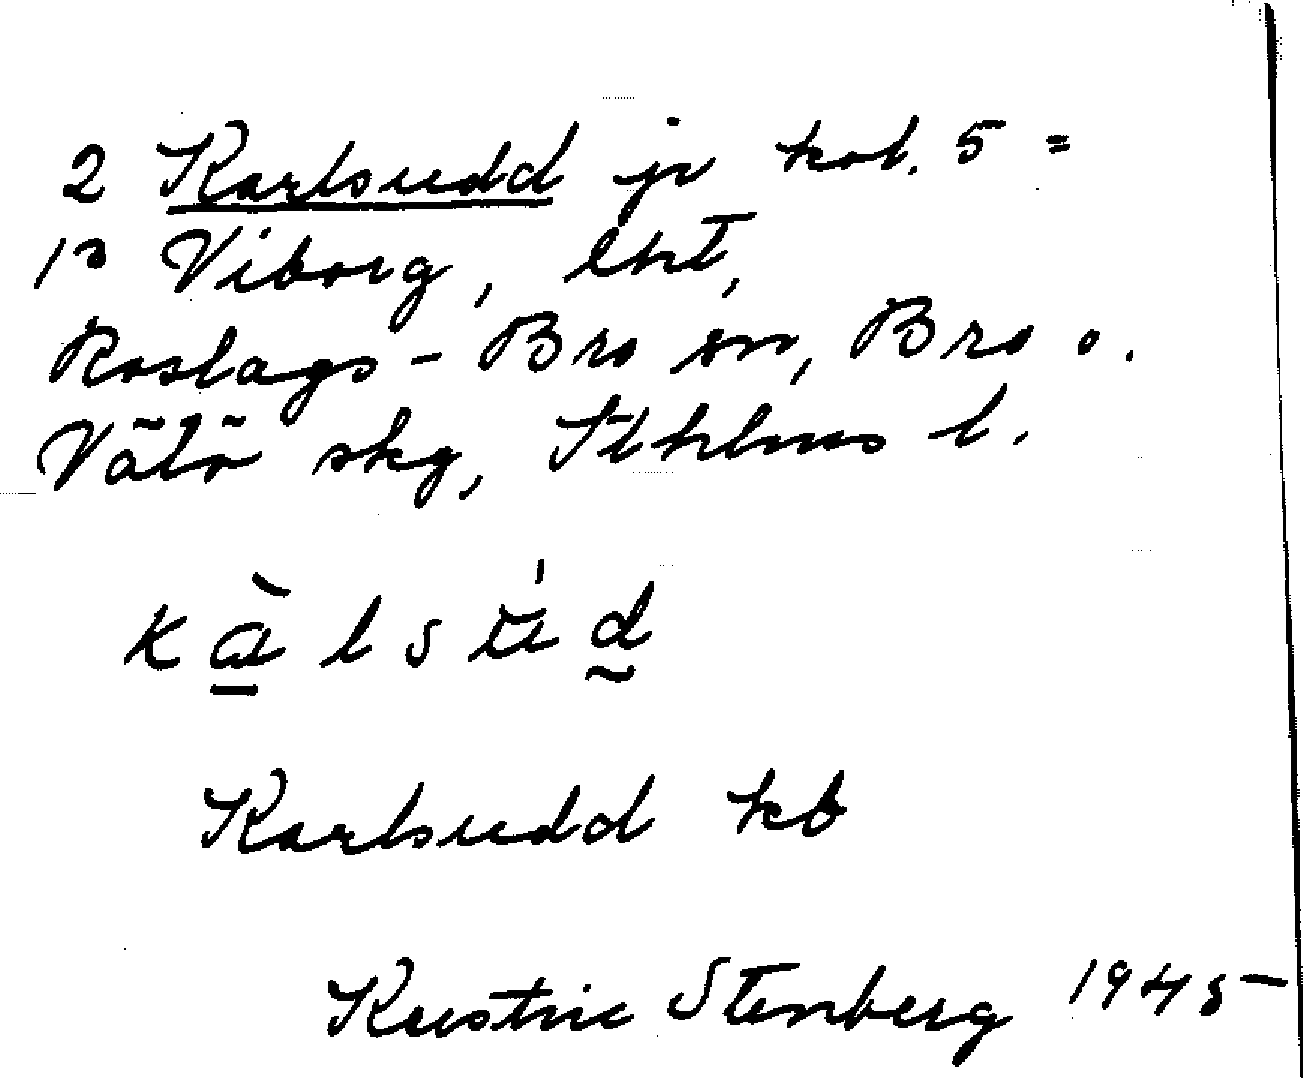 2 Karlsudd jr kol. 5 =
1³ Viborg, lht,
Roslags-Bro sn, Bro o.
Vätö skg, Sthlms l.
kàlsúd
Karlsudd kb
Kerstin Stenberg 1945